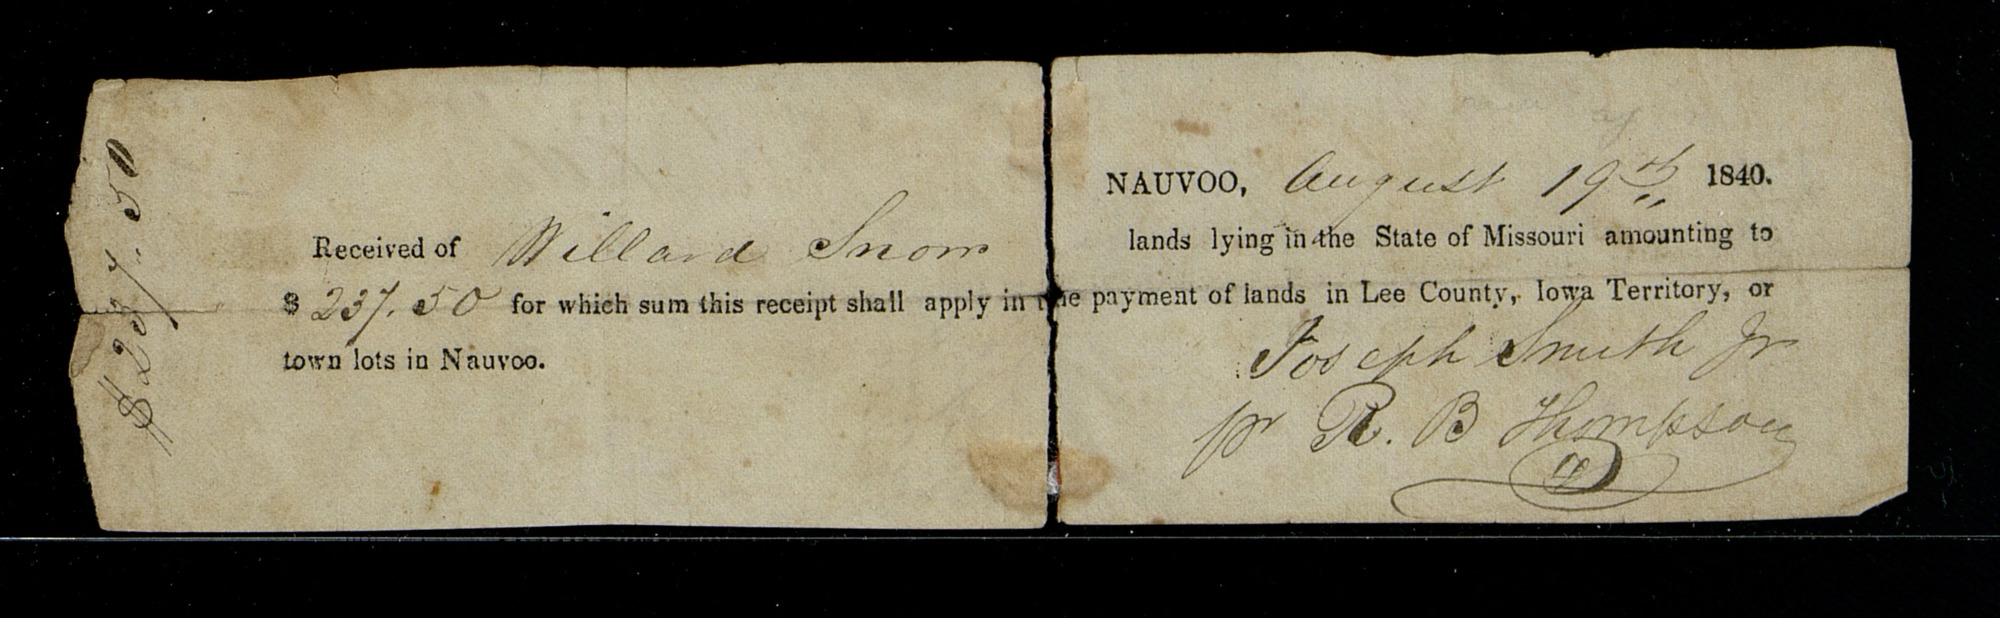 NAUVOO, August 19th 1840.
Received of Willard Snow lands lying in the State of Missouri amounting to
$ 237.50 for which sum this receipt shall apply in the payment of lands in Lee County, Iowa Territory, or
town lots in Nauvoo.
Joseph Smith Jr
pr R. B Thompson
$ 237.. 50